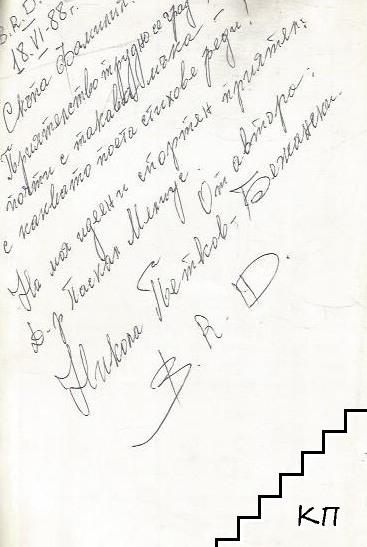 B.R.D.
18.VI.88г.
Скъпа Фамилия!
Приятелство трудно се град
почти с такава мъка
с каквато поета стихове реди!
На моя идеен и спортен приятел:
Д-р Паскал
От автора:
Никола Петков-Бежански.
B.R.D.
КП